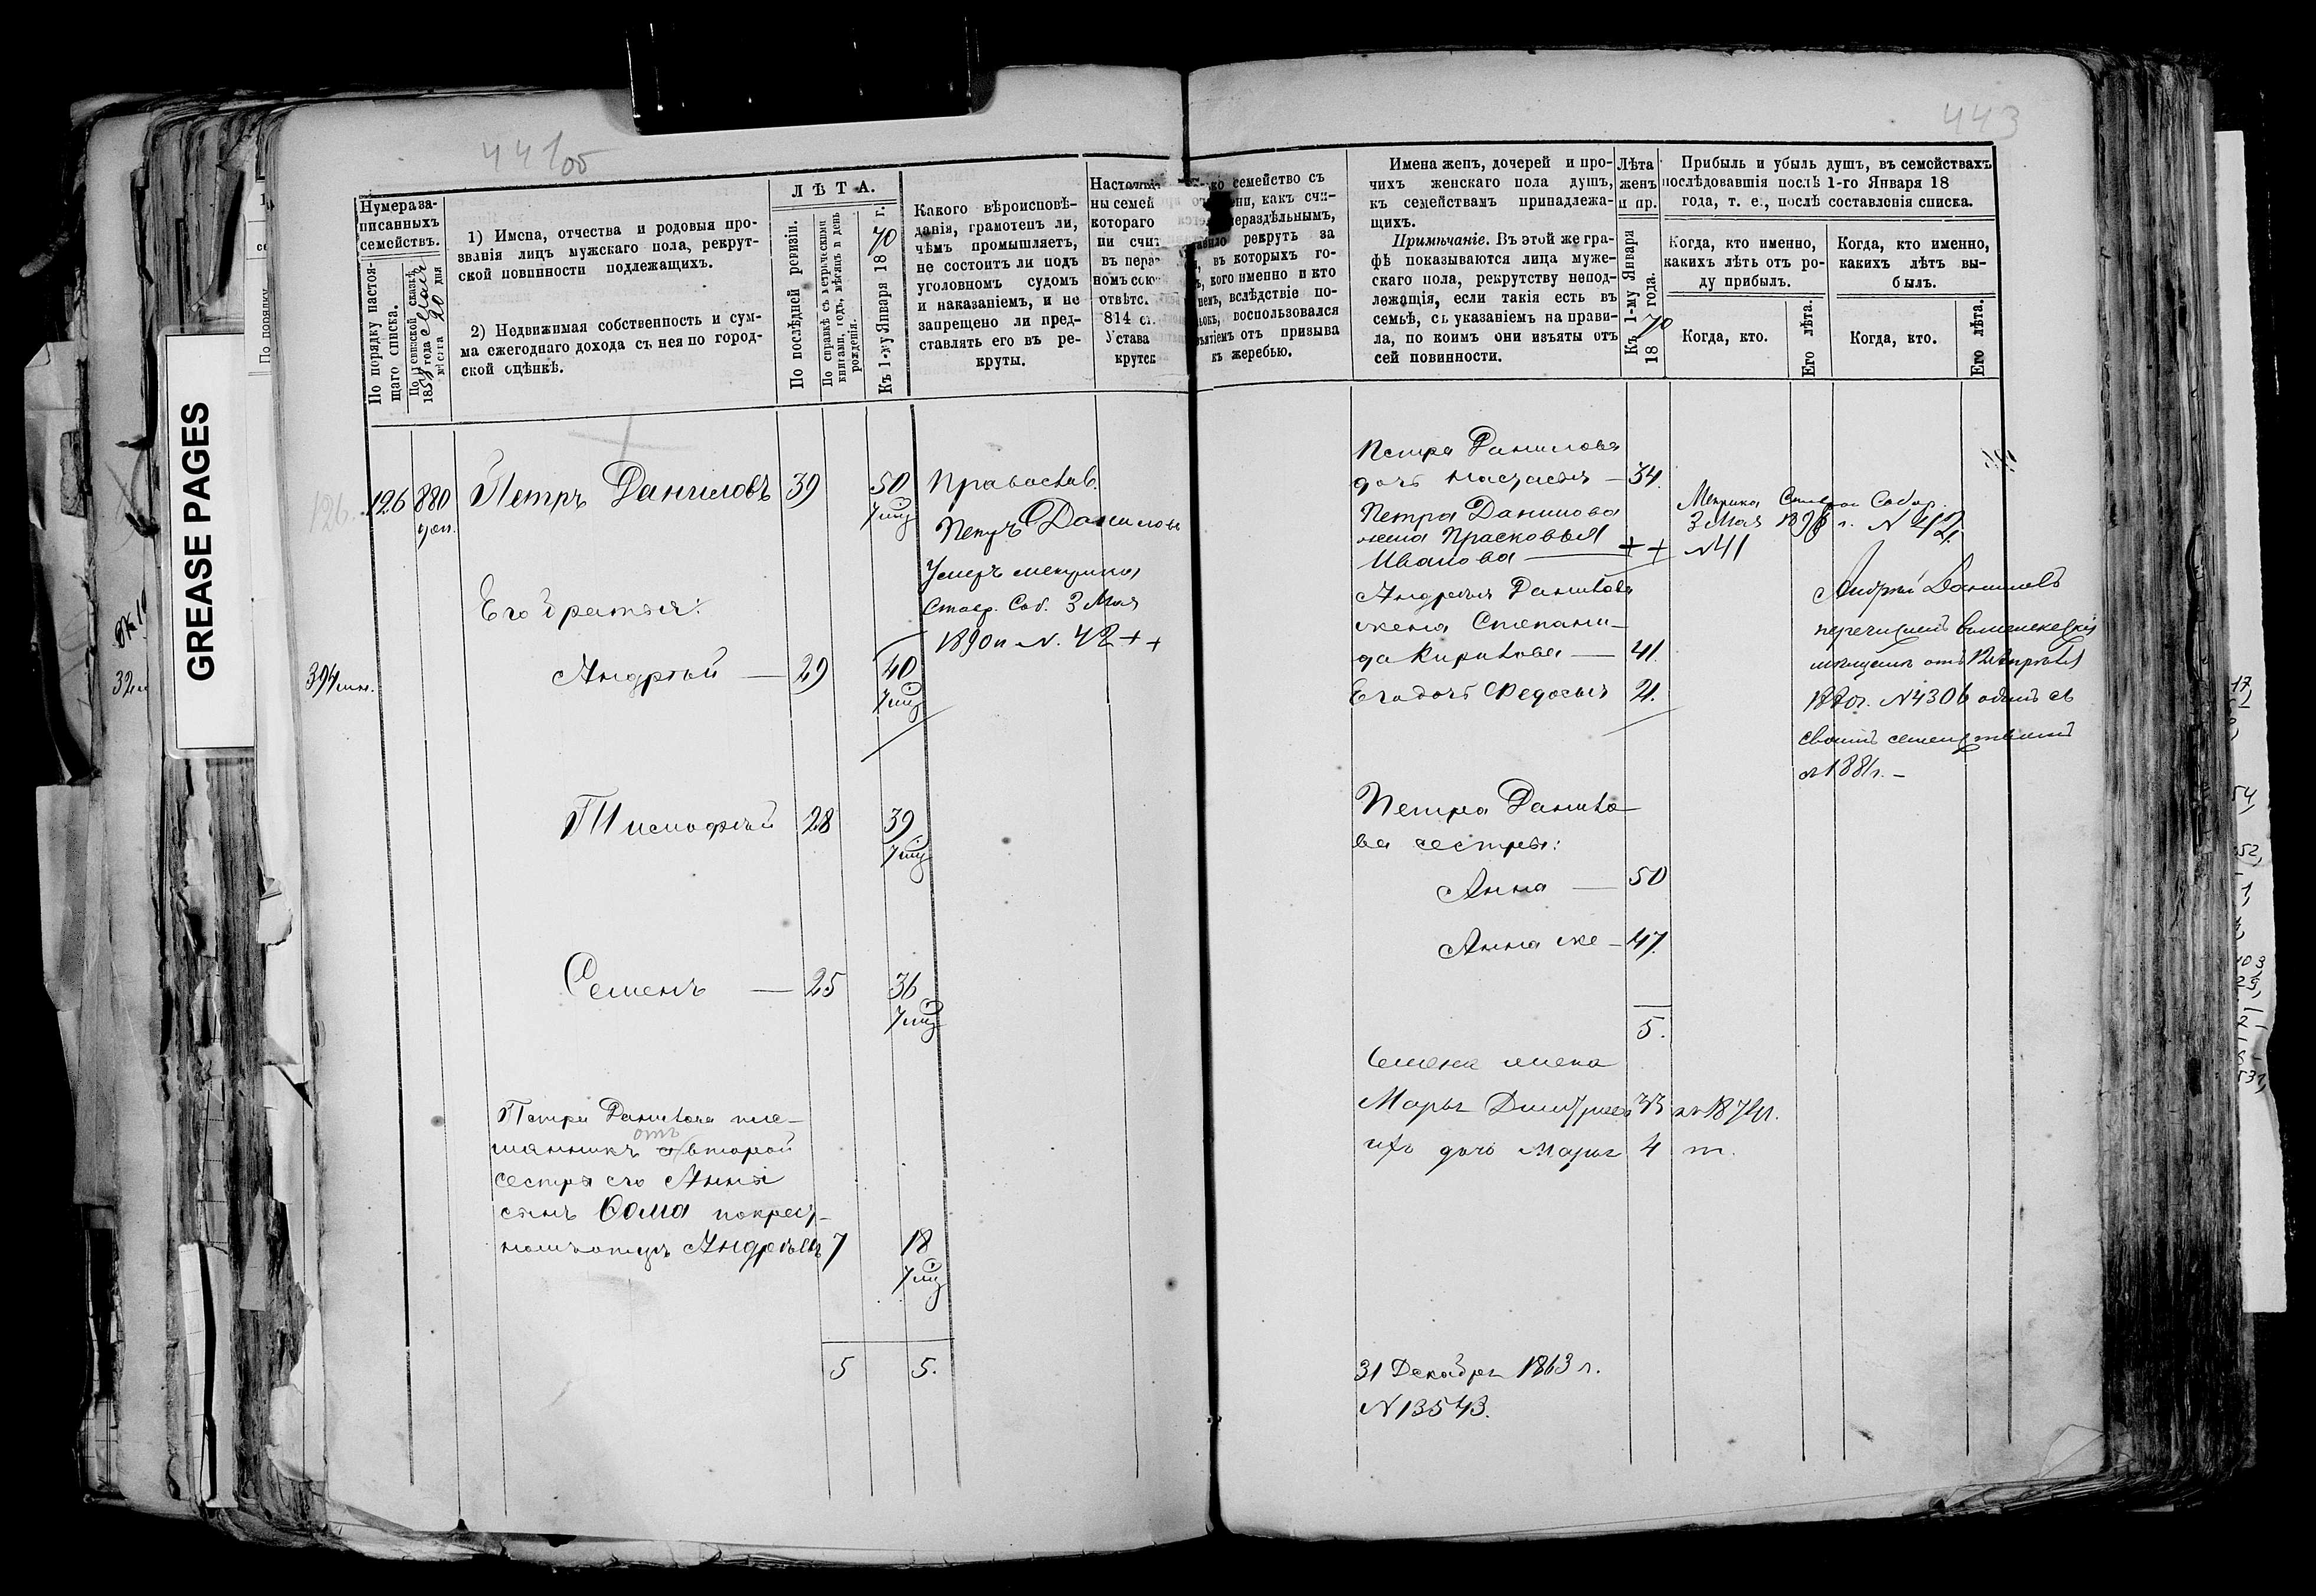 44100
Нумера за-
писанныхъ
семействъ.
По порядку настоя-
щаго списка.
По ревизской сказкѣ
1858 года Мая
мѣсяца 20 дня
1) Имена, отчества и родовыя про-
званія лицъ мужскаго пола, рекрут-
ской повинности подлежащихъ.
2) Недвижимая собственность и сум-
ма ежегоднаго дохода съ нея по город-
ской оцѣнкѣ.
ЛѢТА.
По послѣдней ревизіи.
По справкѣ съ метрическими
книгами, годъ, мѣсяцъ и день
рожденія.
Къ 1-му Января 1870 г.
Какого вѣроисповѣ-
данія, грамотенъ ли,
чѣмъ промышляетъ,
не состоитъ ли подъ
уголовномъ судомъ
и наказаніемъ, и не
запрещено ли пред-
ставлять его въ ре-
круты.
ны семей
котораго
ни счит
въ
отвѣтс.
814 ст.
Устава
126. 126 880 Петръ Даниловъ 39 50 Православ.
Петръ Данилов
Умеръ метрика
Ставр. Соб. 3 Мая
1890 г. N. 42 ++
Его братья:
394 Андрей — 29 40
Тимофей 28 39
Семенъ — 25 36
Петра Данилова пле-
мянникъ отъ второй
сестры его Анны
сынъ Фома по крест-
ному отцу Андреевъ 7 18
5 5.
GREASE PAGES
443
семейство съ
какъ счи-
нераздѣльнымъ,
рекрутъ за
въ которыхъ го-
кого именно и кто
вслѣдствіе по-
воспользовался
отъ призыва
къ жеребью.
Имена женъ, дочерей и про-
чихъ женскаго пола душъ,
къ семействамъ принадлежа-
щихъ.
Примѣчаніе. Въ этой же гра-
фѣ показываются лица муже-
скаго пола, рекрутству непод-
лежащія, если такія есть въ
семьѣ, съ указаніемъ на прави-
ла, по коимъ они изъяты отъ
сей повинности.
Лѣта
женъ
и пр.
Къ 1-му Января
1870 года.
Прибыль и убыль душъ, въ семействахъ
послѣдовавшія послѣ 1-го Января 18
года, т. е., послѣ составленія списка.
Когда, кто именно,
какихъ лѣтъ отъ ро-
ду прибылъ.
Когда, кто именно,
какихъ лѣтъ вы-
былъ.
Когда, кто.
Его лѣта.
Когда, кто.
Его лѣта.
Петра Данилова
дочь Настасья — 34.
Петра Данилова
жена Прасковья
Иванова — ++
Метрика Ставроп Собор.
3 Мая 1890 г. N 42.
N 41
Андрея Данилова
жена Степани-
да Кирилова — 41.
Его дочь Федосья 21.
Андрей Даниловъ
перечисленъ
мѣщане отъ
1880 г. N 4306 одинъ съ
своимъ семействомъ
съ 1881 г. —
Петра Данило-
ва сестры:
Анна — 50
Анна же — 47.
5.
Семена жена
Марья Дмитриева 33 съ 1872 г.
ихъ дочь Марья 4 т.
31 Декабря 1863 г.
N 13543.